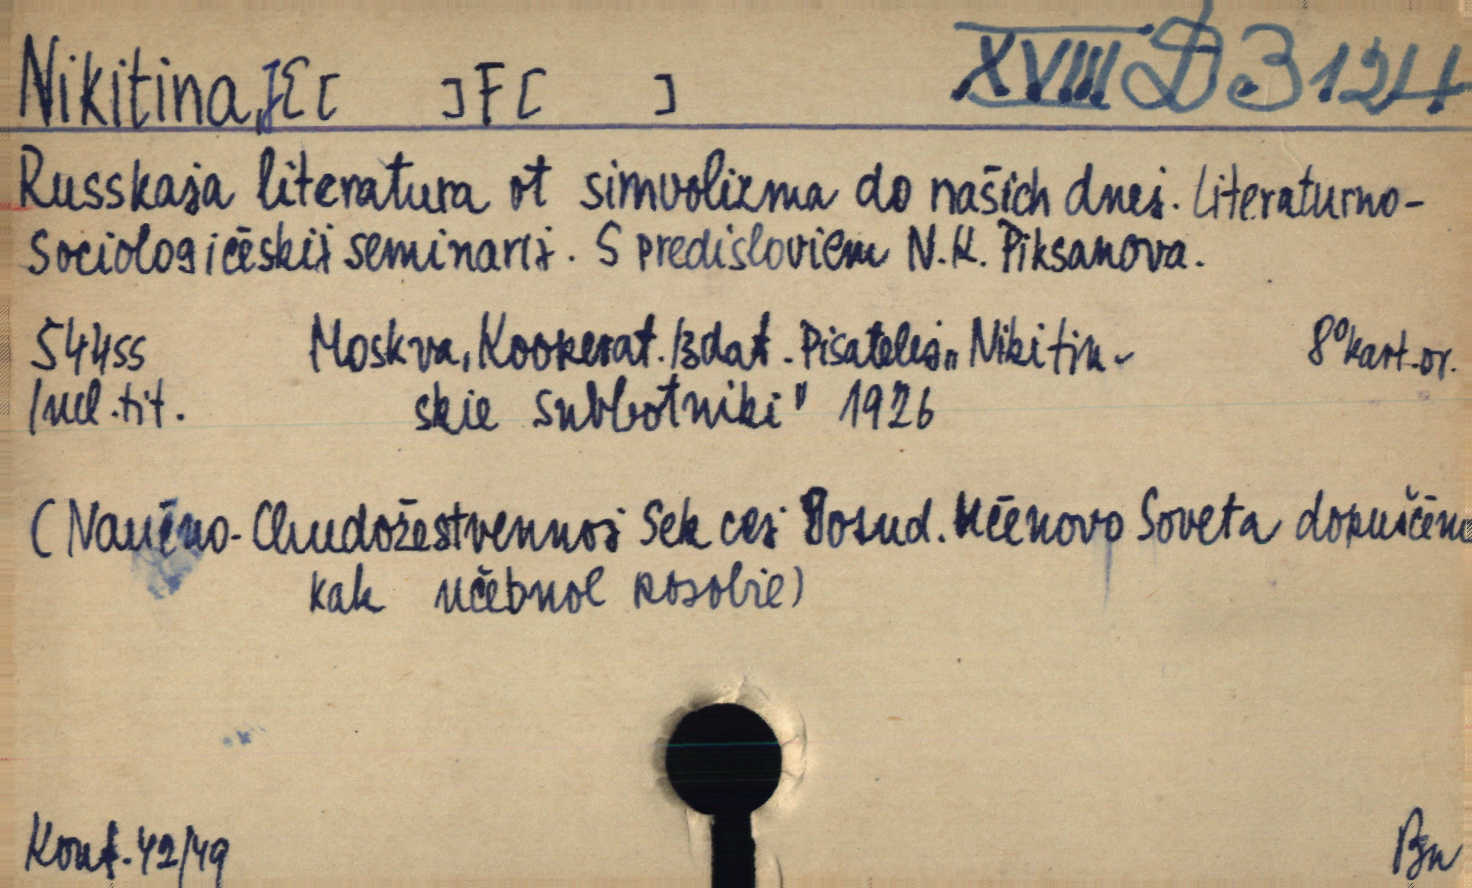 Nikitina, E[ ] F[ ] XVIII D 3124
Russkaja literatura ot simvolizma do našich dnej. Literaturno-
sociologičeskij seminarij. S predisloviem N.K. Piksanova.
544ss Moskva, Kooperat. Izdat. Pisatelej „Nikitin- 8° kart. or.
Incl. tit. skie subbotniki" 1926
(Naučno-Chudožestvennoj Sekcej Gosud. Učenovo Soveta dopuščeno
kak učebnoe posobie)
Konf. 42/49